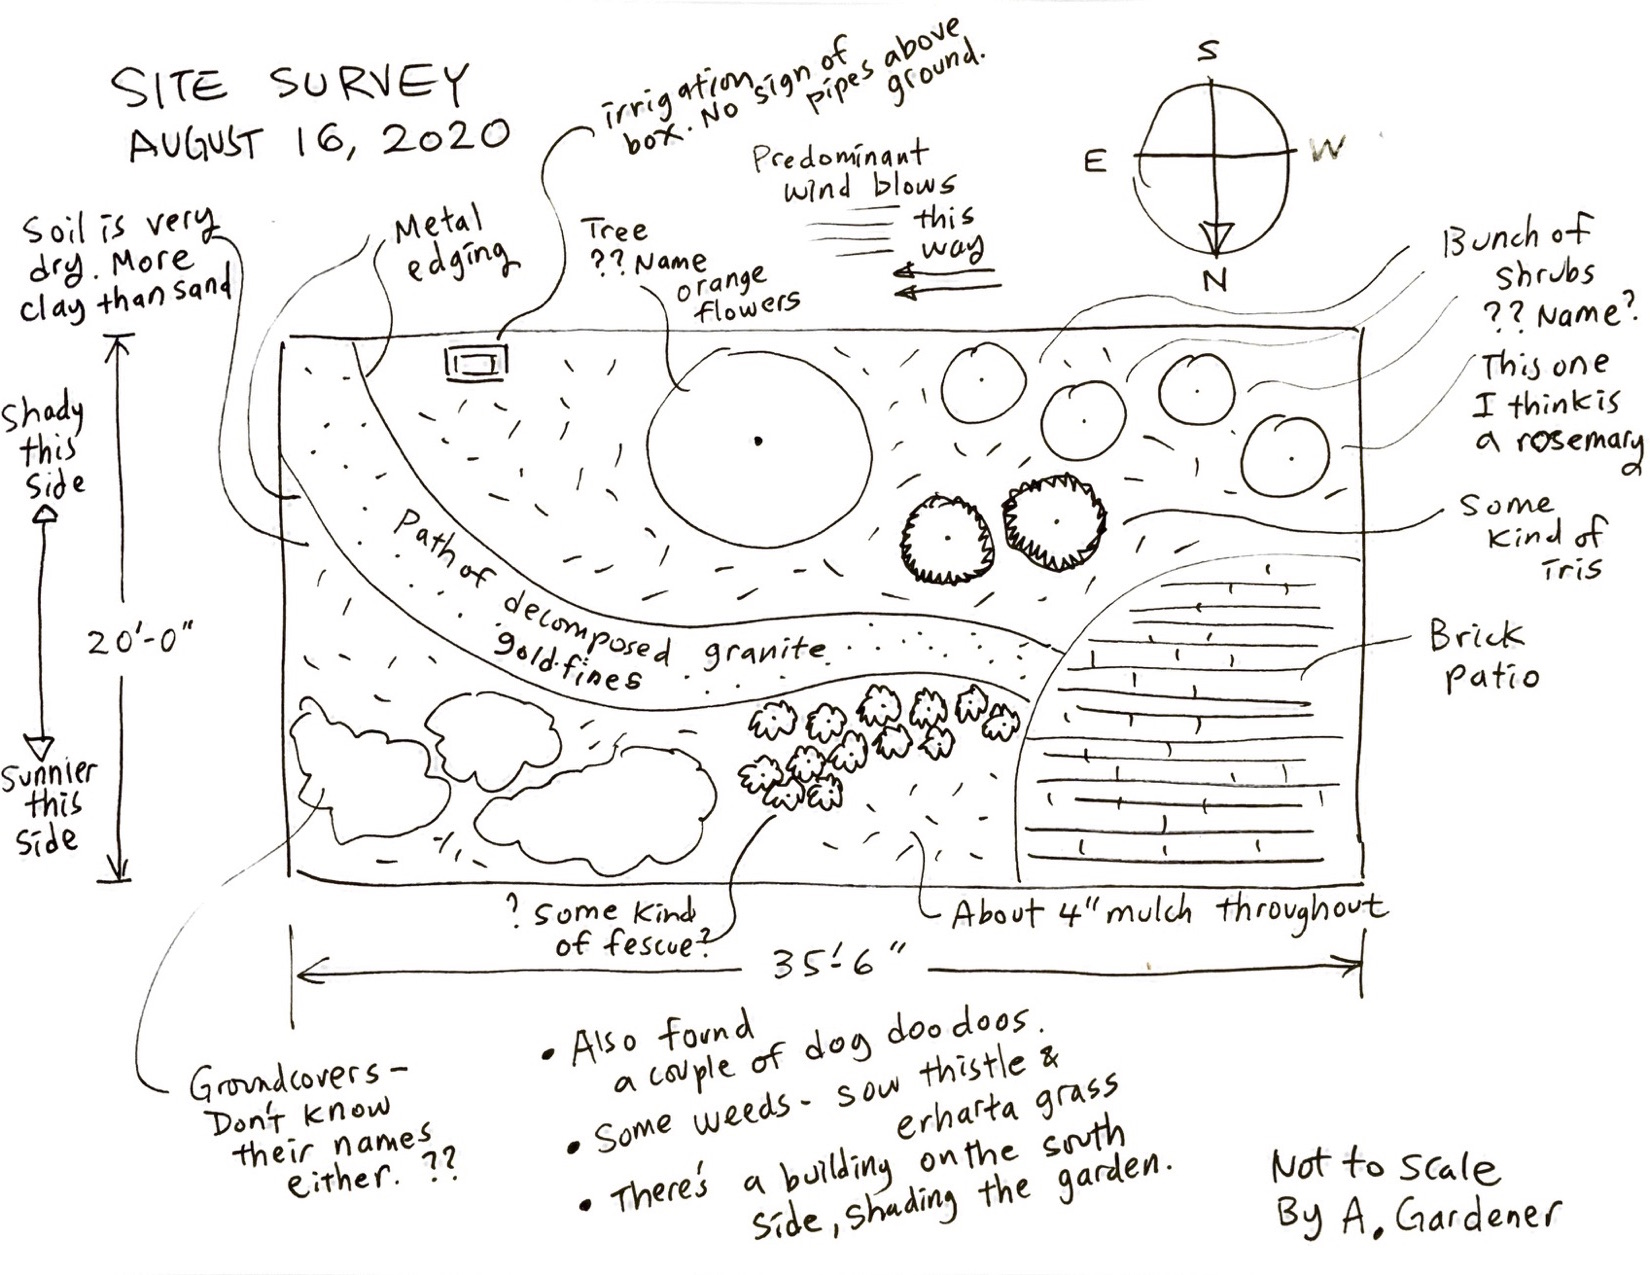 SITE SURVEY
AUGUST 16, 2020
irrigation
box. No sign of
pipes above
ground.
Predominant
wind blows
this
way
S
E
W
N
Soil is very
dry. More
clay than sand
Metal
edging
Tree
?? Name
orange
flowers
Bunch of
shrubs
?? Name?
This one
I think is
a rosemary
Some
kind of
Iris
Brick
Patio
Shady
this
side
20'-0"
Sunnier
this
side
Path of decomposed granite
gold fines
? Some kind
of fescue?
About 4" mulch throughout
35'-6"
Groundcovers-
Don't know
their names
either. ??
• Also found
a couple of dog doo doos.
• Some weeds - sow thistle &
erharta grass
• There's a building on the south
side, shading the garden.
Not to scale
By A. Gardener